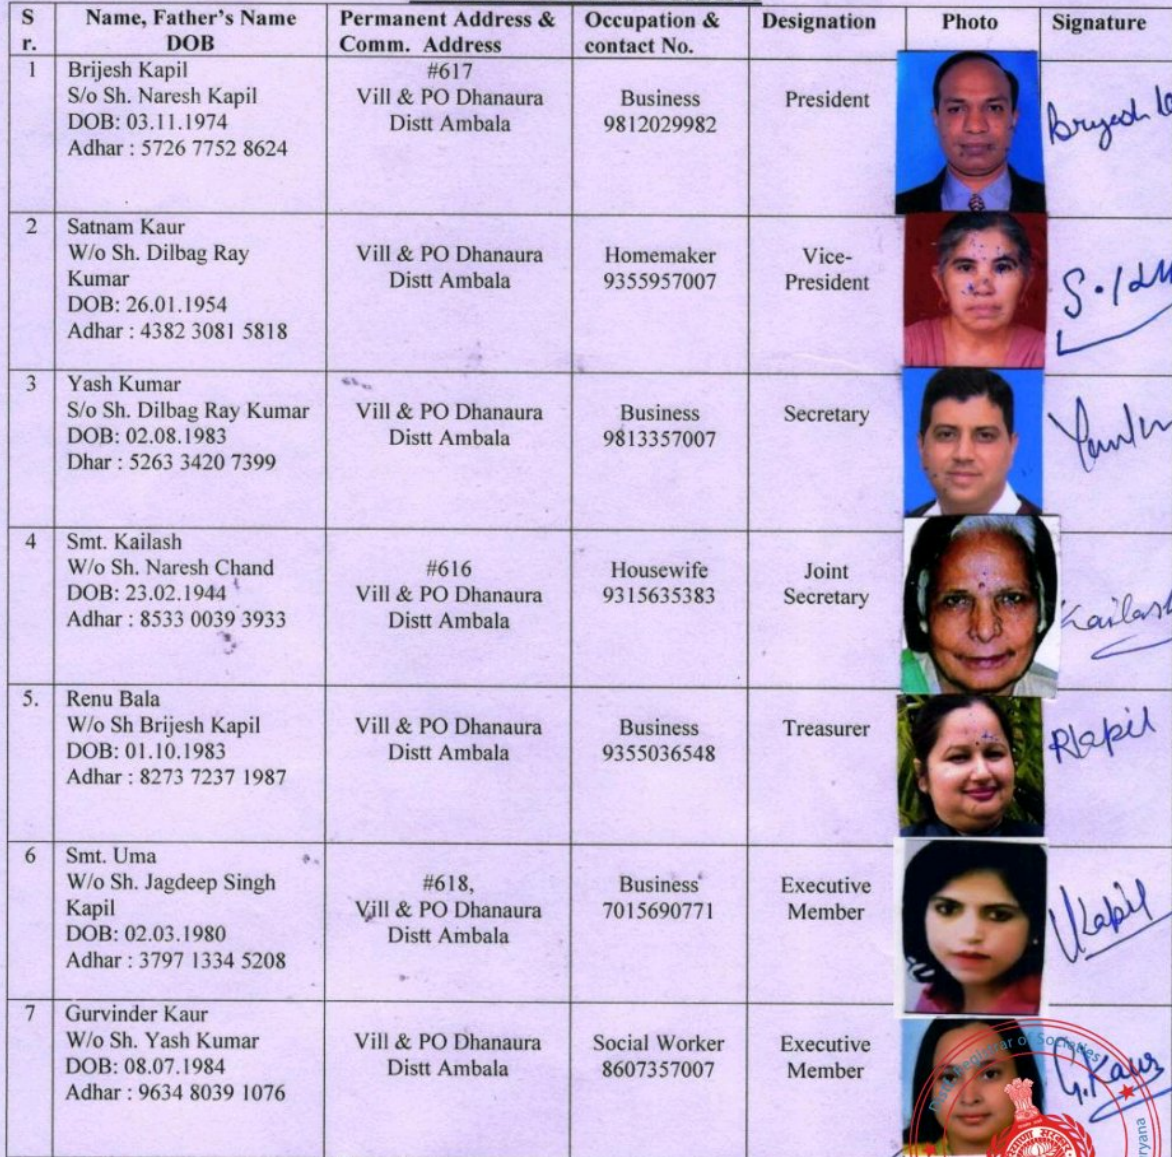 S r. Name, Father's Name DOB Permanent Address & Comm. Address Occupation & contact No. Designation Photo Signature
1
Brijesh Kapil
S/o Sh. Naresh Kapil
DOB: 03.11.1974
Adhar : 5726 7752 8624
#617
Vill & PO Dhanaura
Distt Ambala
Business
9812029982
President
2
Satnam Kaur
W/o Sh. Dilbag Ray
Kumar
DOB: 26.01.1954
Adhar : 4382 3081 5818
Vill & PO Dhanaura
Distt Ambala
Homemaker
9355957007
Vice-
President
3
Yash Kumar
S/o Sh. Dilbag Ray Kumar
DOB: 02.08.1983
Dhar : 5263 3420 7399
Vill & PO Dhanaura
Distt Ambala
Business
9813357007
Secretary
4
Smt. Kailash
W/o Sh. Naresh Chand
DOB: 23.02.1944
Adhar : 8533 0039 3933
#616
Vill & PO Dhanaura
Distt Ambala
Housewife
9315635383
Joint
Secretary
Kailash
5.
Renu Bala
W/o Sh Brijesh Kapil
DOB: 01.10.1983
Adhar : 8273 7237 1987
Vill & PO Dhanaura
Distt Ambala
Business
9355036548
Treasurer
RKapil
6
Smt. Uma
W/o Sh. Jagdeep Singh
Kapil
DOB: 02.03.1980
Adhar : 3797 1334 5208
#618,
Vill & PO Dhanaura
Distt Ambala
Business
7015690771
Executive
Member
UKapil
7
Gurvinder Kaur
W/o Sh. Yash Kumar
DOB: 08.07.1984
Adhar : 9634 8039 1076
Vill & PO Dhanaura
Distt Ambala
Social Worker
8607357007
Executive
Member
G.Kaur
Registrar of Societies